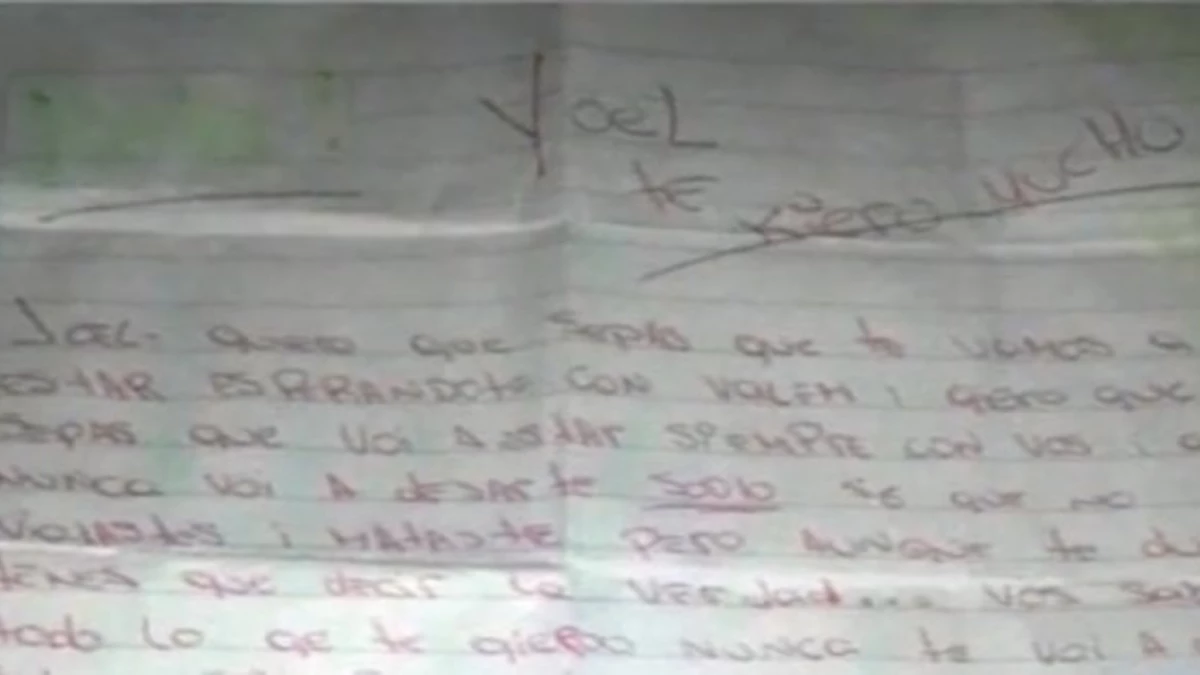 YOEL
te
KiERO MUCHO
JOEL. QUIERO QUE SEPAS QUE te VAMOS A
ESTAR ESPARANDOte CON VALEM i GiERO QUE
SEPAS QUE VOi A ESTAR SPEMPRE CON VOS i
NUNCA VOi A DEJARte SOOlo SE QUE NO
ViOLASTES i MATASTE PERO AUNQUE te
TENES QUE DECiR LA VERdad... VOS
todo lo QE te QiERDO NUNCA te VOi A